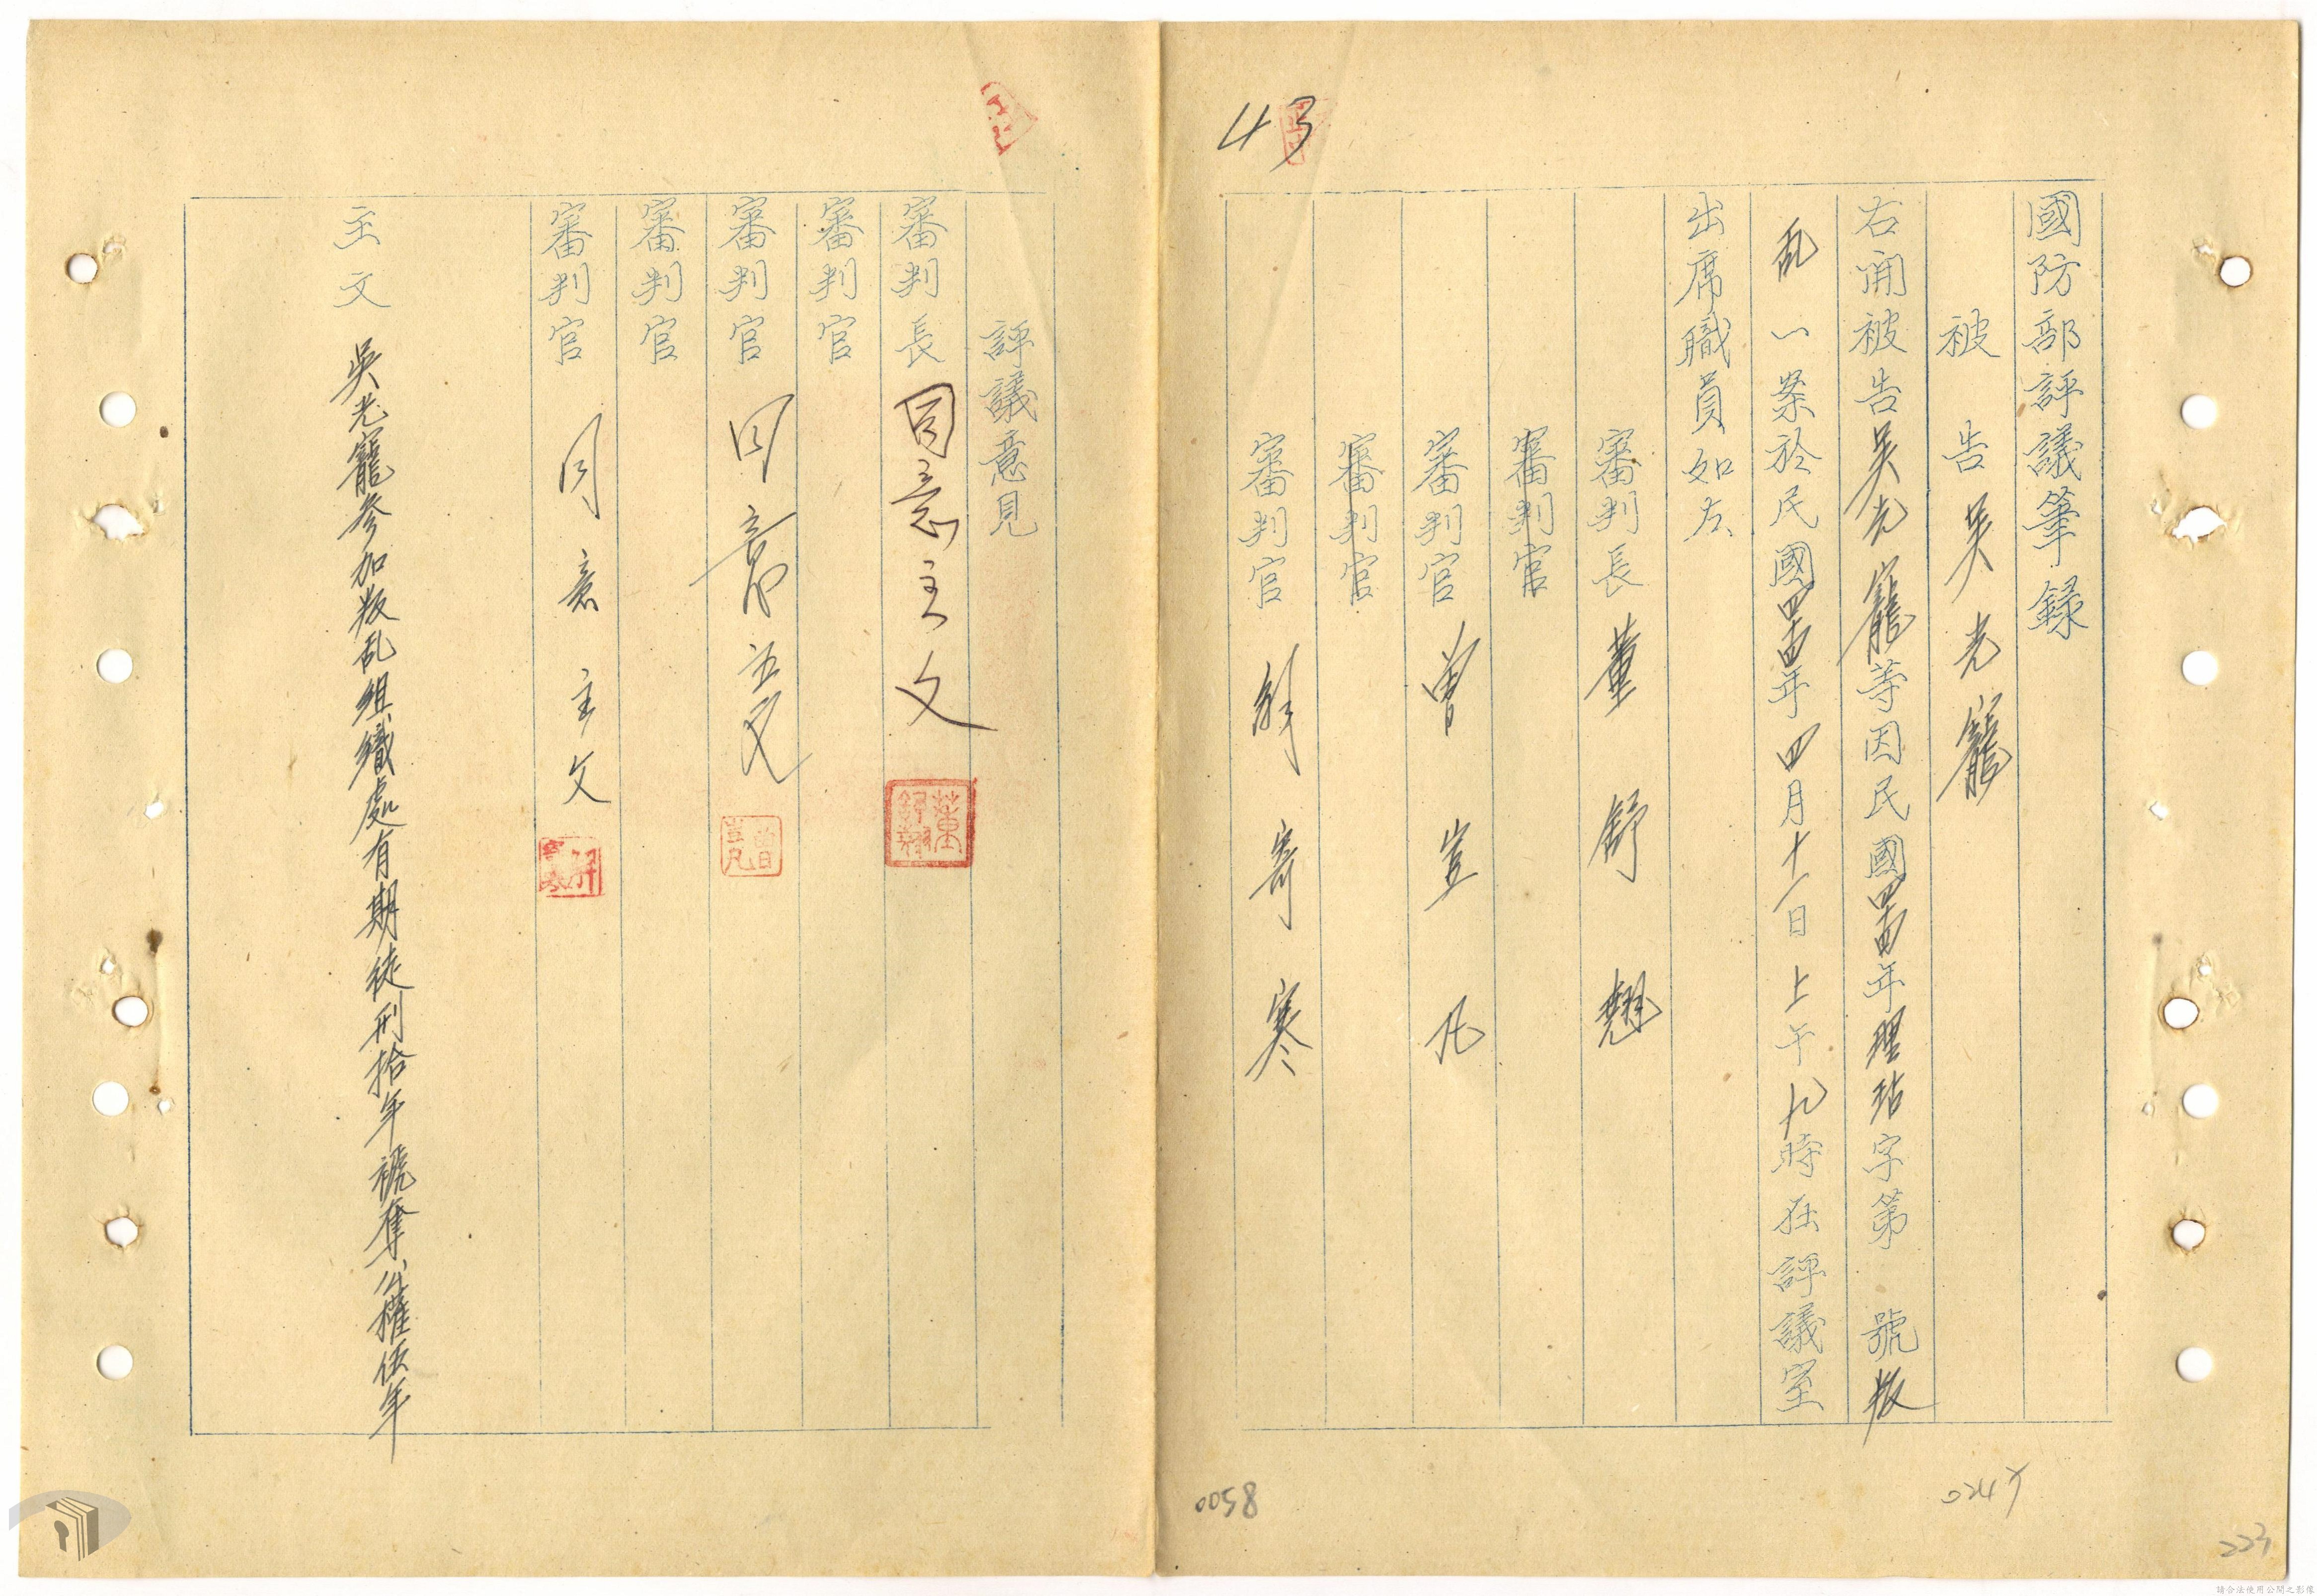 43
國防部評議筆録
被告 吳光寵
右開被告吳光寵等因民國四四年理玷字第 號叛
亂一案於民國四四年四月十一日上午九時在評議室
出席職員如左
審判長 董舒翹
審判官
審判官 曾豈凡
審判官
審判官 解寄寒
評議意見
審判長 同意主文
審判官
審判官 同意主文
審判官
審判官 同意主文
主文 吳光寵參加叛乱組織處有期徒刑拾年褫奪公權伍年
董舒翹
曾豈凡
解寄寒
0058
223
請合法使用公開之影像